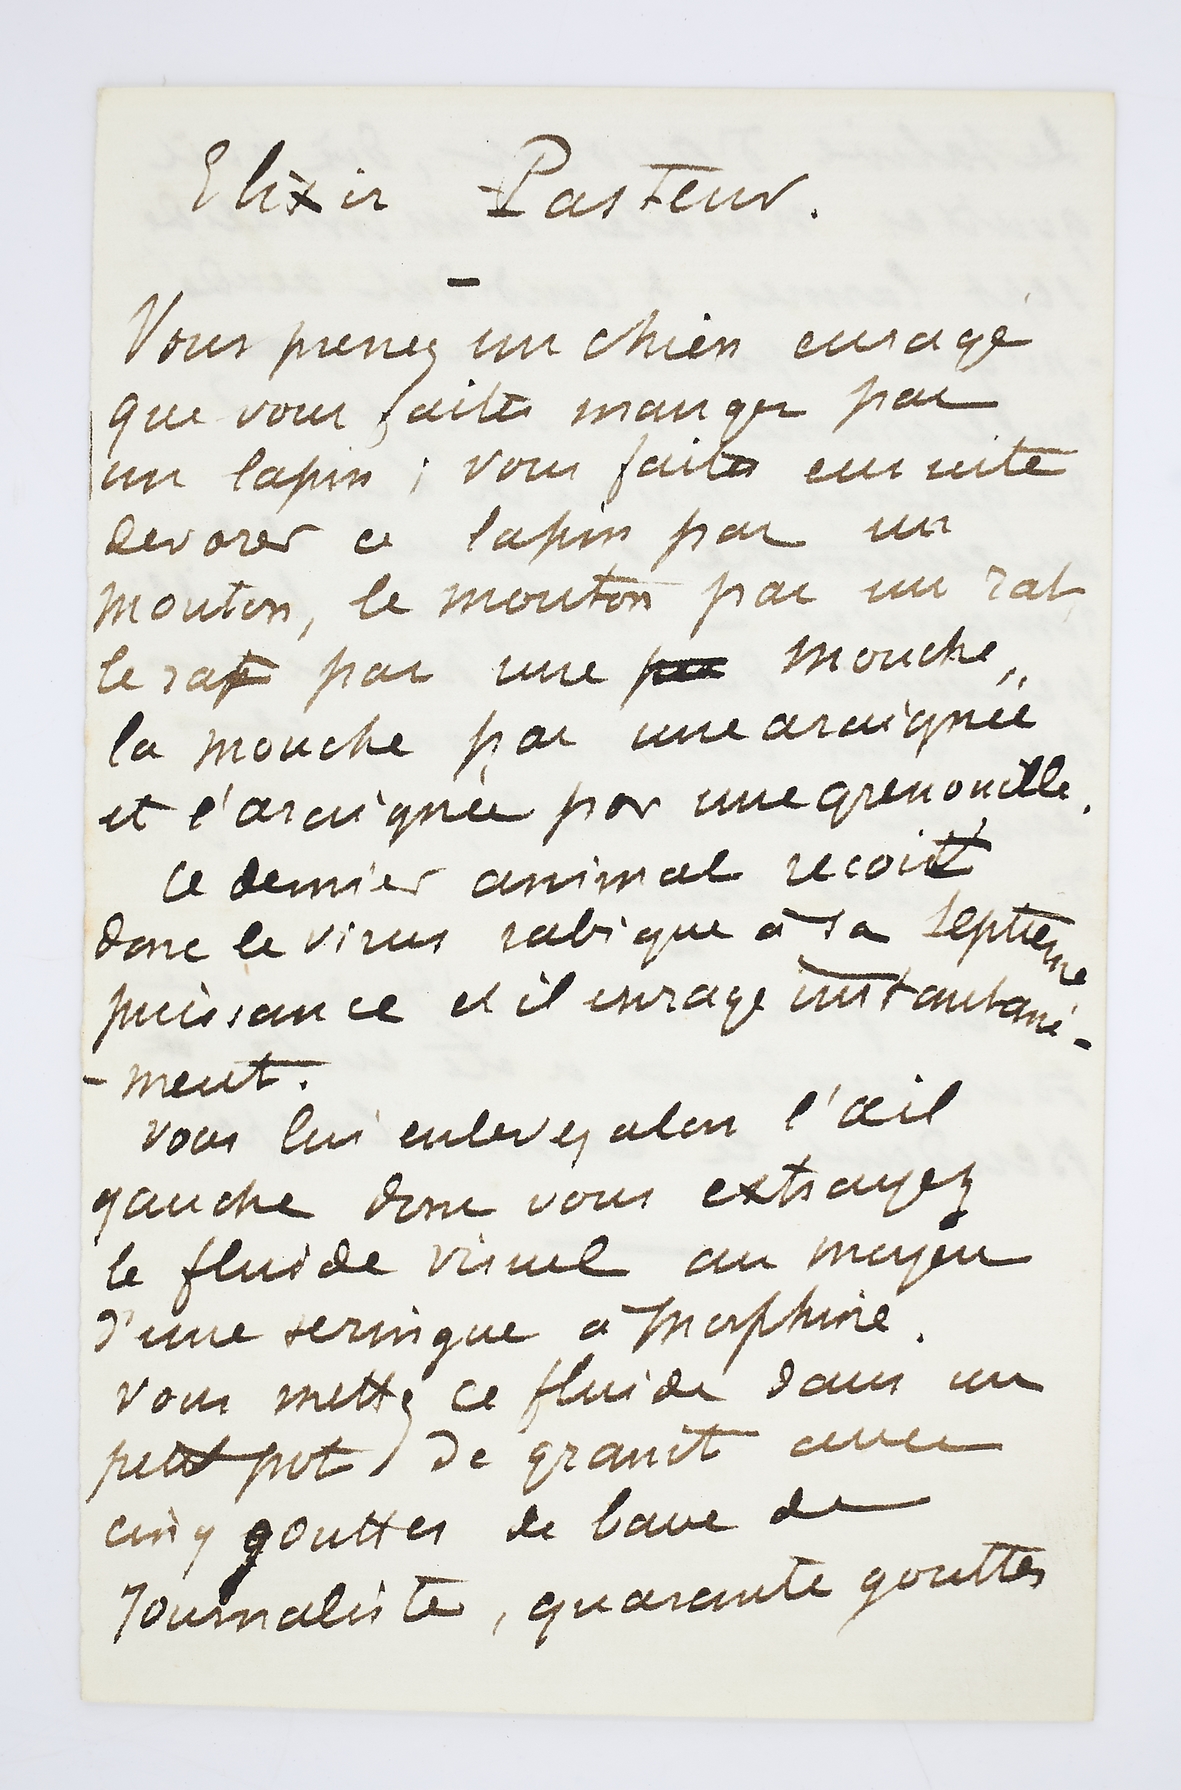 Elixir Pasteur.
Vous prenez un chien enragé
que vous faites manger par
un lapin ; vous faites ensuite
devorer ce lapin par un
mouton, le mouton par un rat,
le rat par une mouche,
la mouche par une araignée
et l'araignée par une grenouille.
Ce dernier animal recoit
donc le virus rabique à sa septieme
puissance et il enrage instantané-
-ment.
Vous lui enlevez alors l'œil
gauche dont vous extrayez
le fluide visuel au moyen
d'une seringue à morphine.
Vous mettez ce fluide dans un
petit pot de granit avec
cinq gouttes de bave de
Journaliste, quarante gouttes